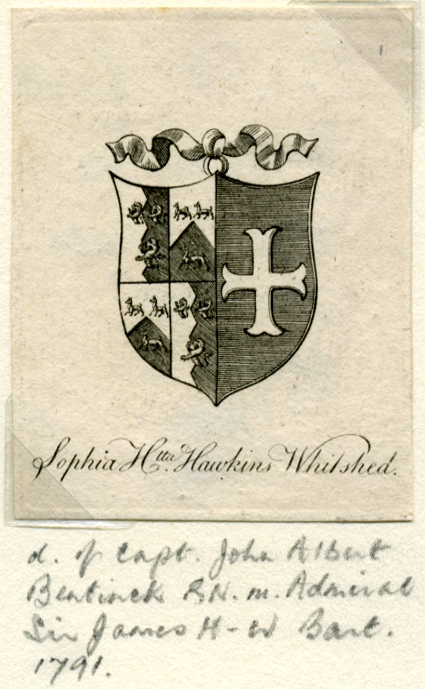 Sophia Htta. Hawkins Whitshed.
d. of Capt. John Albert
Bentinck R.N. m. Admiral
Sir James H-W Bart.
1791.